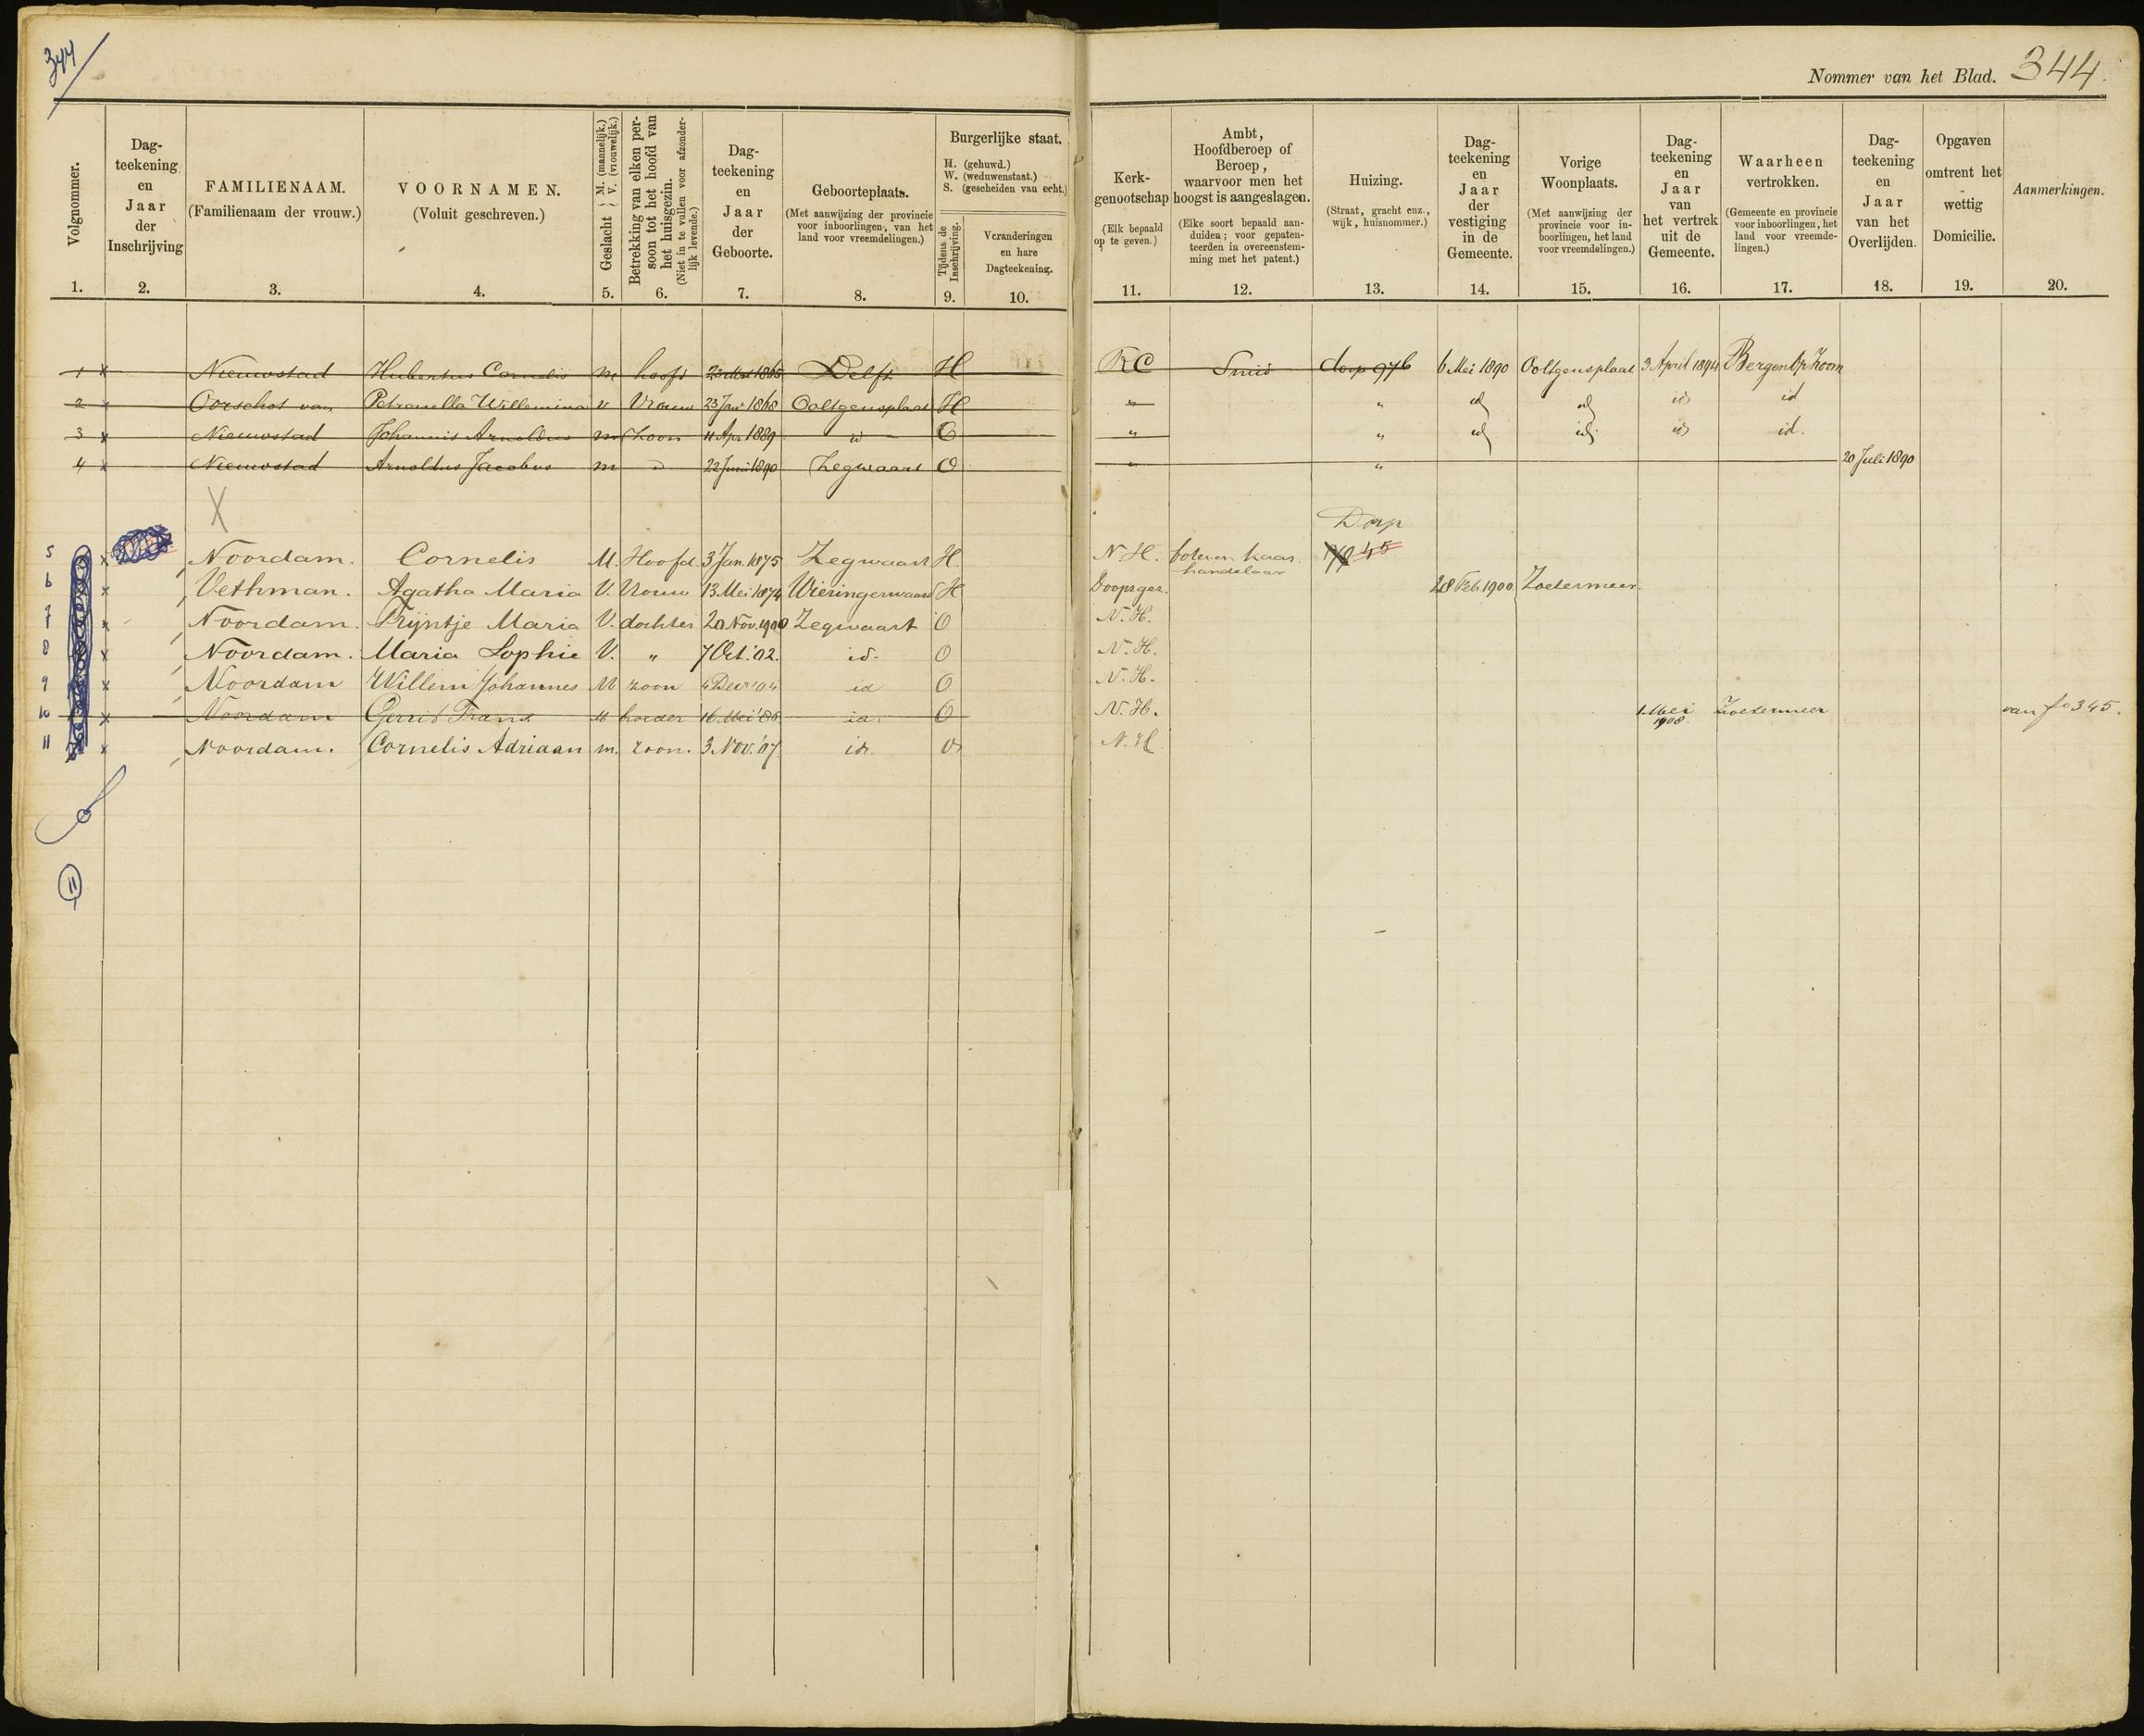 344
Nommer van het Blad. 344.
Volgnommer.
Dag-
teekening
en
Jaar
der
Inschrijving
FAMILIENAAM.
(Familienaam der vrouw.)
VOORNAMEN.
(Voluit geschreven.)
Geslacht { M. (mannelijk.) V. (vrouwelijk.)
Betrekking van elken per-
soon tot het hoofd van
het huisgezin.
(Niet in te vullen voor afzonder-
lijk levende.)
Dag-
teekening
en
Jaar
der
Geboorte.
Geboorteplaats.
(Met aanwijzing der provincie
voor inboorlingen, van het
land voor vreemdelingen.)
Burgerlijke staat.
H. (gehuwd.)
W. (weduwenstaat.)
S. (gescheiden van echt.)
Tijdens de
Inschrijving.
Veranderingen
en hare
Dagteekening.
Kerk-
genootschap
(Elk bepaald
op te geven.)
Ambt,
Hoofdberoep of
Beroep,
waarvoor men het
hoogst is aangeslagen.
(Elke soort bepaald aan-
duiden; voor gepaten-
teerden in overeenstem-
ming met het patent.)
Huizing.
(Straat, gracht enz.,
wijk, huisnommer.)
Dag-
teekening
en
Jaar
der
vestiging
in de
Gemeente.
Vorige
Woonplaats.
(Met aanwijzing der
provincie voor in-
boorlingen, het land
voor vreemdelingen.)
Dag-
teekening
en
Jaar
van
het vertrek
uit de
Gemeente.
Waarheen
vertrokken.
(Gemeente en provincie
voor inboorlingen, het
land voor vreemde-
lingen.)
Dag-
teekening
en
Jaar
van het
Overlijden.
Opgaven
omtrent het
wettig
Domicilie.
Aanmerkingen.
1. 2. 3. 4. 5. 6. 7. 8. 9. 10. 11. 12. 13. 14. 15. 16. 17. 18. 19. 20.
1 x Nieuwstad Hubertus Cornelis m hoofd 1865 Delft H RC Smid dorp 97b 6 Mei 1890 Ooltgensplaat 3 April 1894 Bergen Op Zoom
2 x Oorschot van Petronella Willemina v Vrouw 23 Jan 1868 Ooltgensplaat H " " id id id id
3 x Nieuwstad Johannis Arnoldus m Zoon 11 Apr 1889 id O " " id id id id.
4 x Nieuwstad Arnoldus Jacobus m " 22 Juni 1890 Zegwaart O " " 20 Juli 1890
X
Dorp
5 x Noordam. Cornelis M. Hoofd. 3 Jan. 1875 Zegwaart H. N.H. boter en kaas 45
handelaar
6 x Vethman. Agatha Maria V. Vrouw 13 Mei 1874 Wieringerwaard H Doopsgez. 28 Feb. 1900. Zoetermeer.
7 x Noordam. Trijntje Maria V. dochter 20 Nov. 1900 Zegwaart O N.H.
8 x Noordam. Maria Sophie V. " 7 Oct. '02. id. O N.H.
9 x Noordam Willem Johannes M zoon 4 Dec '04 id O N.H.
10 x Noordam Gerrit Frans M broeder 16 Mei '86 id O N.H. 1 Mei 1908. Zoetermeer van fo 345.
11 x Noordam. Cornelis Adriaan m. zoon. 3 Nov. '07 id. O N.H.
11